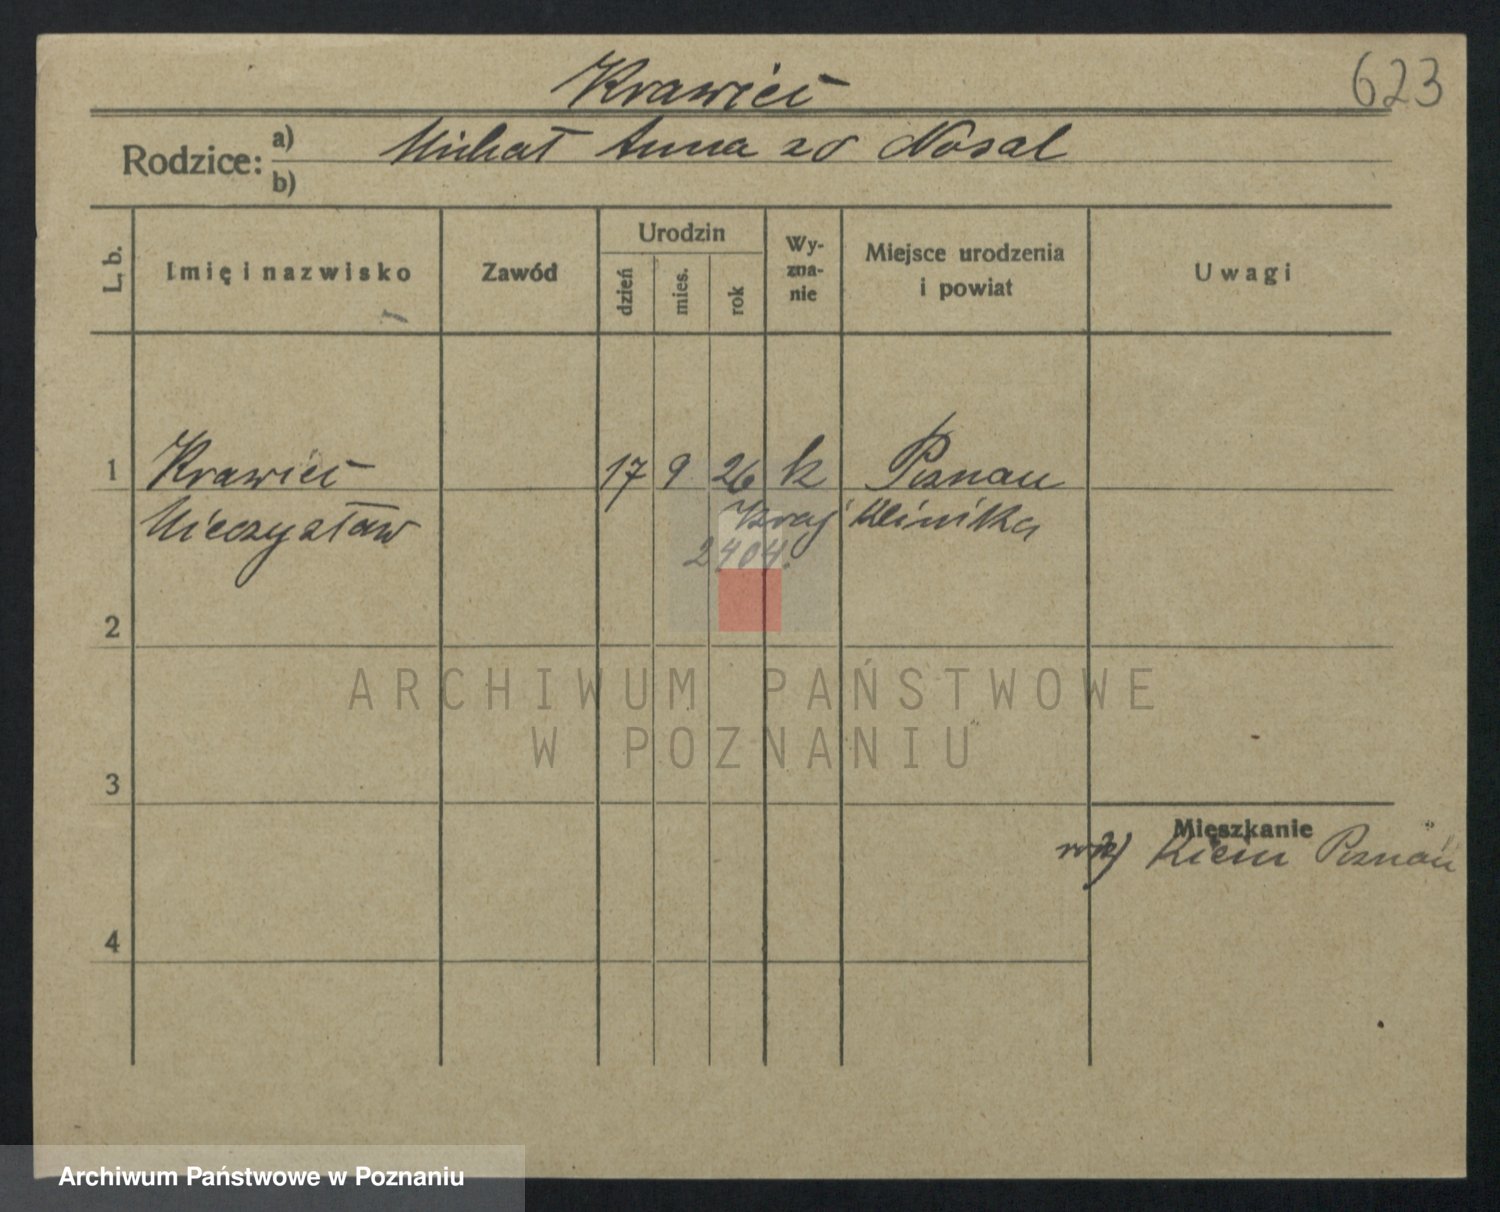 623
Krawiec
Rodzice:
a) Michał Anna zd Nosal
b)
L. b.
Imię i nazwisko
Zawód
Urodzin
dzień
mies.
rok
Wy-
zna-
nie
Miejsce urodzenia
i powiat
Uwagi
1 Krawiec 17 9 26 k Poznań
Mieczysław Kraj Klinika
2404.
2
3
4
Mieszkanie
Poznań
ARCHIWUM PAŃSTWOWE
W POZNANIU
Archiwum Państwowe w Poznaniu